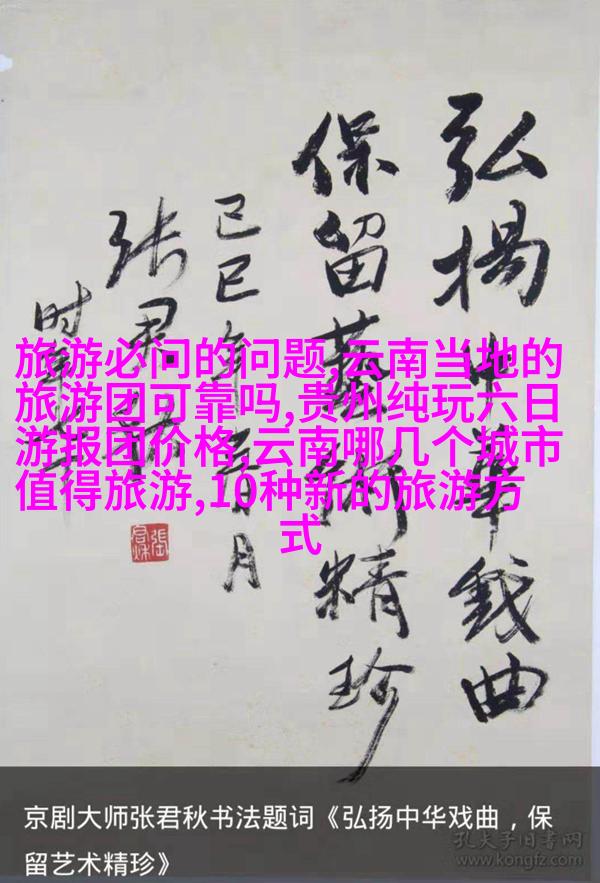 弘揚中華戲曲
保留藝術精珍
己巳年春月
张君秋
时年
張君秋
旅游必问的问题,云南当地的
旅游团可靠吗,贵州纯玩六日
游报团价格,云南哪几个城市
值得旅游,10种新的旅游方
式
京剧大师张君秋书法题词《弘扬中华戏曲，保
留艺术精珍》
孔夫子旧书网
www.kongfz.com